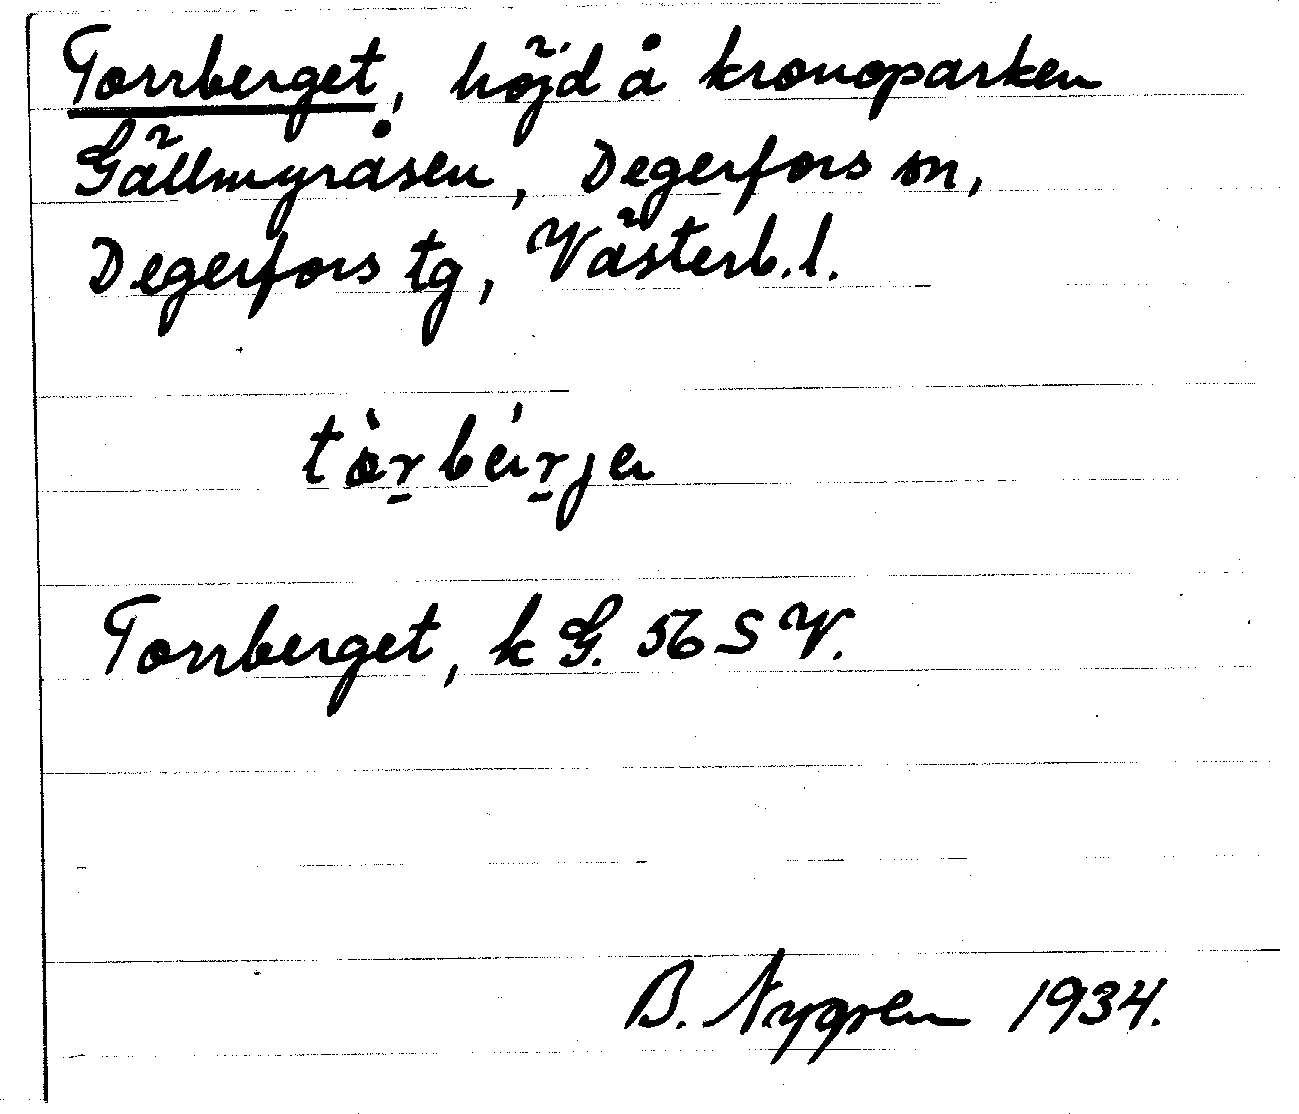 Torrberget, höjd å kronoparken
Gällmyråsen, Degerfors sn,
Degerfors tg, Västerb.l.
tòr̠bér̠jen
Torrberget, k G. 56 S V.
B. Nygren 1934.